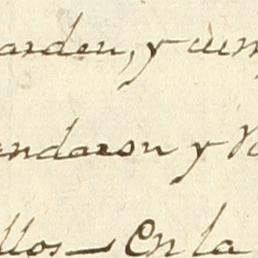 arden, y cum
andaron y
llos - En la